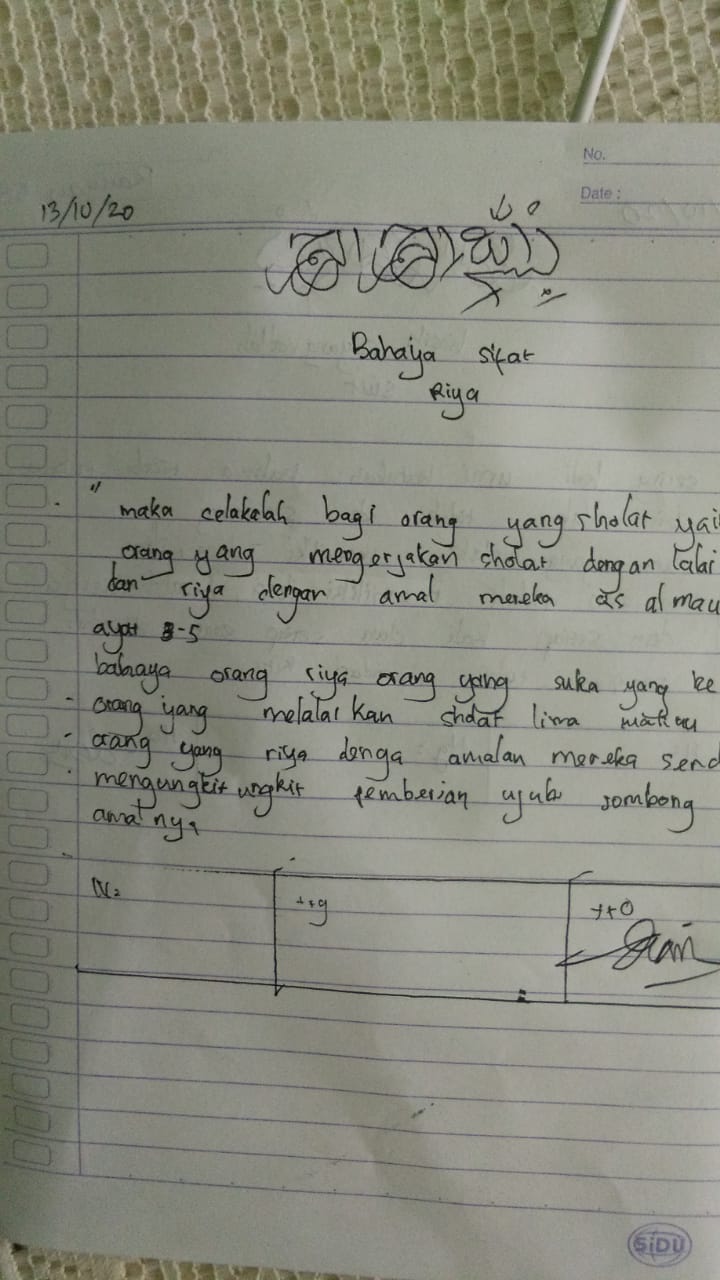 No.
Date :
13/10/20
Bahaya sifat
Riya
" maka celakalah bagi orang yang sholat yai
orang yang mengerjakan sholat dengan lalai
dan riya dengan amal mereka as al mau
ayat 3-5
bahaya orang riya orang yang suka yang ke
- orang yang melalai kan sholat lima waktu
- orang yang riya denga amalan mereka send
mengungkit ungkit pemberian ujub sombong
amalnya
N:
ttg
tto
SiDU